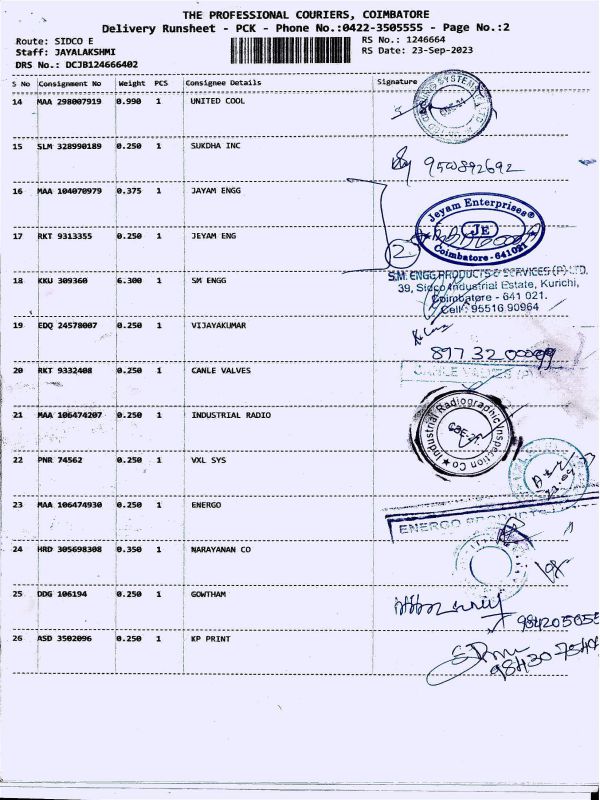 THE PROFESSIONAL COURIERS, COIMBATORE
Delivery Runsheet - PCK - Phone No.:0422-3505555 - Page No.:2
Route: SIDCO E
RS No.: 1246664
Staff: JAYALAKSHMI
RS Date: 23-Sep-2023
DRS No.: DCJB124666402
S No Consignment No Weight PCS Consignee Details Signature
14 MAA 298007919 0.990 1 UNITED COOL
15 SLM 328990189 0.250 1 SUKDHA INC
16 MAA 104070979 0.375 1 JAYAM ENGG
Jeyam Enterprises®
JE
Coimbatore - 641021
17 RKT 9313355 0.250 1 JEYAM ENG
2
18 KKU 309360 6.300 1 SM ENGG
S.M. ENGG PRODUCTS & SERVICES (P) LTD.
39, Sidco Industrial Estate, Kurichi,
Coimbatore - 641 021.
Cell : 95516 90964
19 EDQ 24578007 0.250 1 VIJAYAKUMAR
20 RKT 9332408 0.250 1 CANLE VALVES
CANLE VALVES
21 MAA 106474207 0.250 1 INDUSTRIAL RADIO
Industrial Radiographic Inspection Co
CBE-21
22 PNR 74562 0.250 1 VXL SYS
23 MAA 106474930 0.250 1 ENERGO
ENERGO PRODUCTS
24 HRD 305698308 0.350 1 NARAYANAN CO
25 DDG 106194 0.250 1 GOWTHAM
26 ASD 3502096 0.250 1 KP PRINT